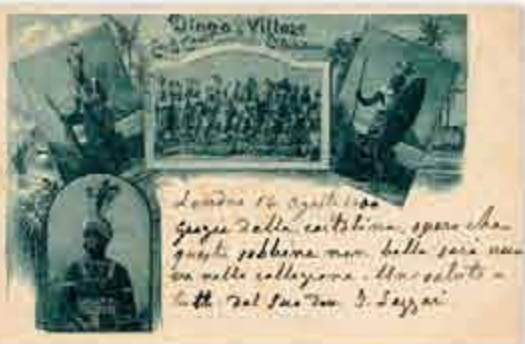 Dinga Village
Londra 14 agosto 1900
grazie della cartolina, spero che
questa sebbene non bella sarà nuo
va nella collezione. Un saluto a
tutti dal suo